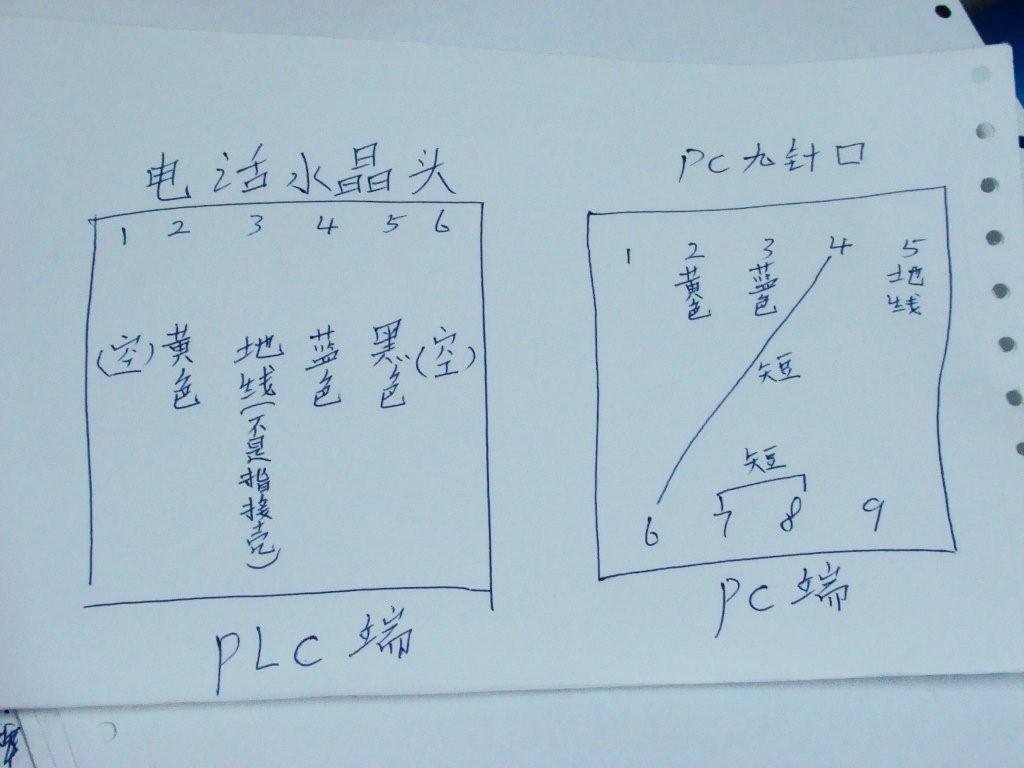 电话水晶头
1 2 3 4 5 6
(空) 黄色 地线(不是指接壳) 蓝色 黑色 (空)
PLC端
PC九针口
1 2 3 4 5
黄色 蓝色 地线
短
短
6 7 8 9
PC端